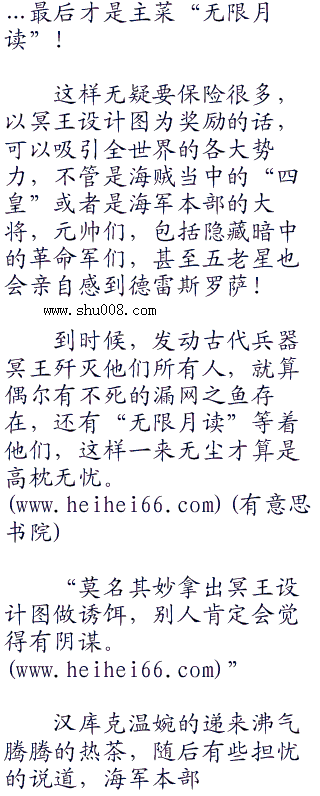 …最后才是主菜“无限月
读”！
这样无疑要保险很多，
以冥王设计图为奖励的话，
可以吸引全世界的各大势
力，不管是海贼当中的“四
皇”或者是海军本部的大
将，元帅们，包括隐藏暗中
的革命军们，甚至五老星也
会亲自感到德雷斯罗萨！
www.shu008.com
到时候，发动古代兵器
冥王歼灭他们所有人，就算
偶尔有不死的漏网之鱼存
在，还有“无限月读”等着
他们，这样一来无尘才算是
高枕无忧。
(www.heihei66.com)(有意思
书院)
“莫名其妙拿出冥王设
计图做诱饵，别人肯定会觉
得有阴谋。
(www.heihei66.com)”
汉库克温婉的递来沸气
腾腾的热茶，随后有些担忧
的说道，海军本部